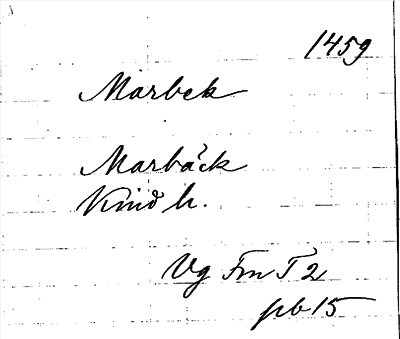 1459
Marbek
Marbäck
Kind h.
Vg Fm T 2
pb 15